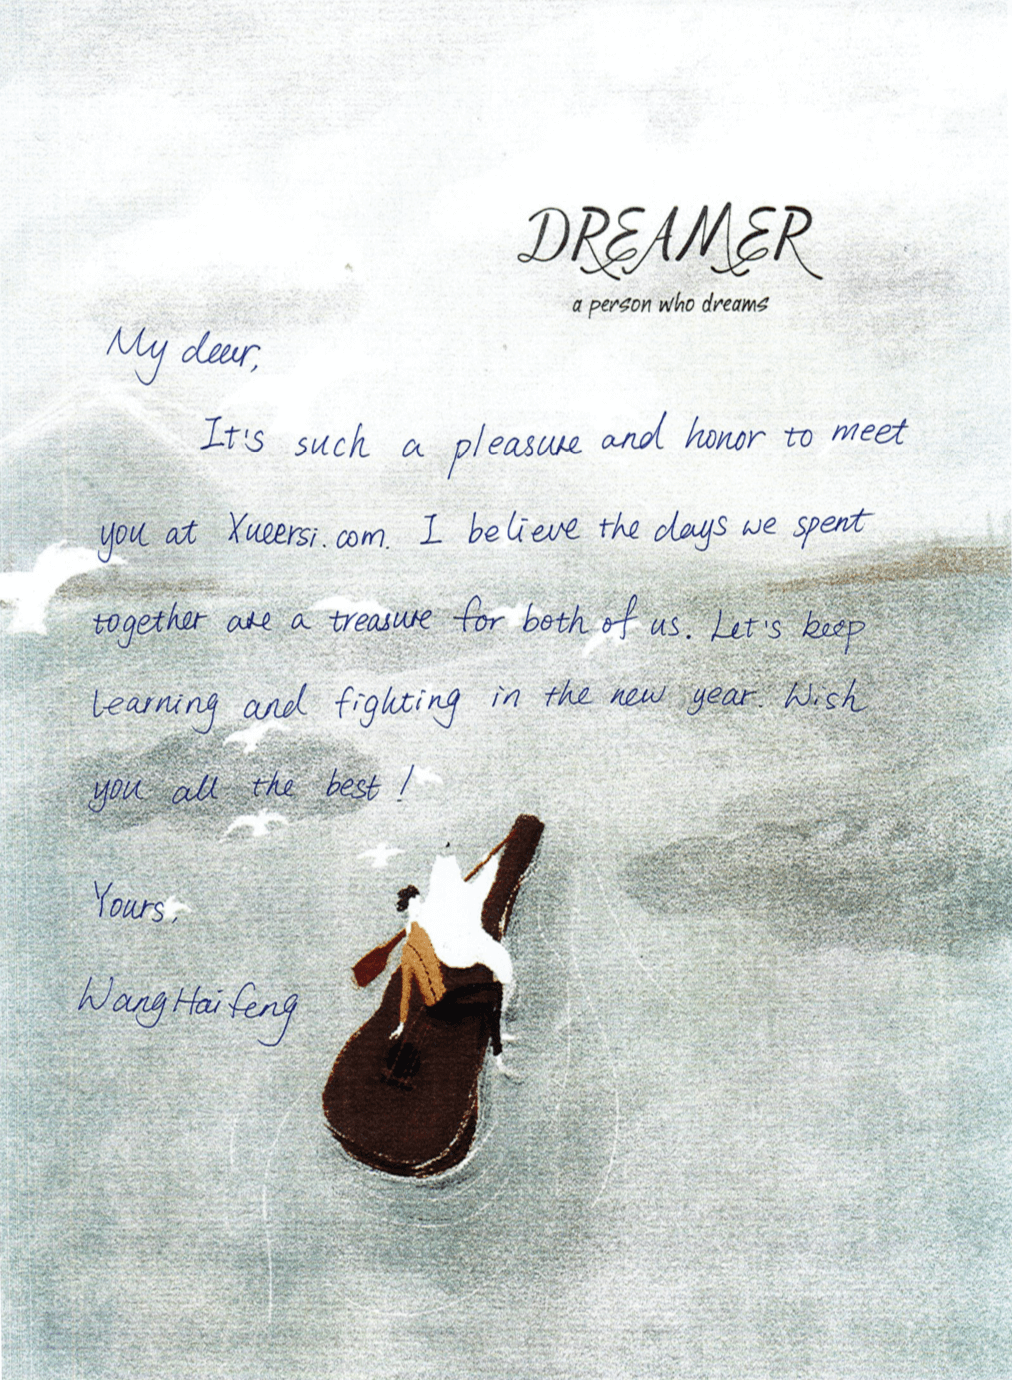 DREAMER
a person who dreams
My dear,
It's such a pleasure and honor to meet
you at Xueersi.com. I believe the days we spent
together are a treasure for both of us. Let's keep
learning and fighting in the new year. Wish
you all the best!
Yours,
Wang Haifeng